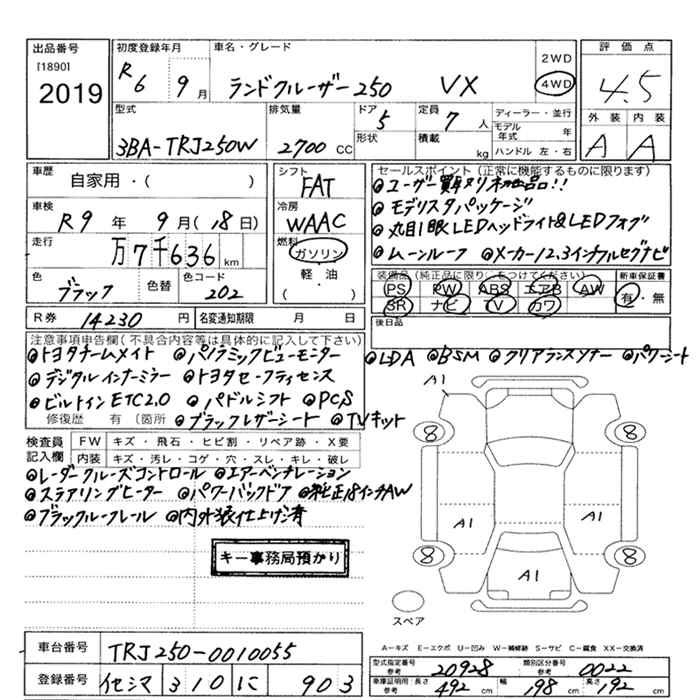 出品番号
[1890]
2019
初度登録年月
R6年 9月
車名・グレード
ランドクルーザー250 VX
2WD
4WD
評価点
4.5
外装 内装
A A
型式
3BA-TRJ250W
排気量
2700 CC
ドア
5
形状
定員
7人
積載
kg
ディーラー・並行
モデル年式 年
ハンドル 左・右
車歴
自家用・( )
車検
R9年 9月(18日)
走行
万7千636 km
色
ブラック
色替
色コード
202
シフト
FAT
冷房
WAAC
燃料
ガソリン
軽・油
( )
セールスポイント(正常に機能するものに限ります)
◎ユーザー買取りネ出品!!
◎モデリスタパッケージ
◎丸目1眼LEDヘッドライト&LEDフォグ
◎ムーンルーフ ◎メーカー12.3インチフルセグナビ
装備品(純正品に限り○をつけてください)
PS PW ABS エアB AW
SR ナビ TV カワ
新車保証書
有・無
後日品
R券 14230 円
名変通知期限 月 日
注意事項申告欄(不具合内容等は具体的に記入して下さい)
◎トヨタチームメイト ◎パノラミックビューモニター
◎LDA ◎BSM ◎クリアランスソナー ◎パワーシート
◎デジタルインナーミラー ◎トヨタセーフティセンス
◎ビルトインETC2.0 ◎パドルシフト ◎PCS
修復歴 有 (箇所 ◎ブラックレザーシート ◎TVキット
検査員記入欄
FW キズ・飛石・ヒビ割・リペア跡・X要
内装 キズ・汚レ・コゲ・穴・スレ・キレ・破レ
◎レーダークルーズコントロール ◎エアーベンチレーション
◎ステアリングヒーター ◎パワーバックドア ◎純正18インチAW
◎ブラックルーフレール ◎内外装仕上げ済
キー事務局預かり
A1
8 8
A1 A1
8 8
A1
スペア
A=キズ E=エクボ U=凹み W=補修跡 S=サビ C=腐食 XX=交換済
車台番号
TRJ250-0010055
登録番号
イセシマ 310 に 903
型式指定番号 参考
20928
類別区分番号 参考
0022
車庫証明用・長さ 参考
492 cm
幅
198 cm
高さ
192 cm